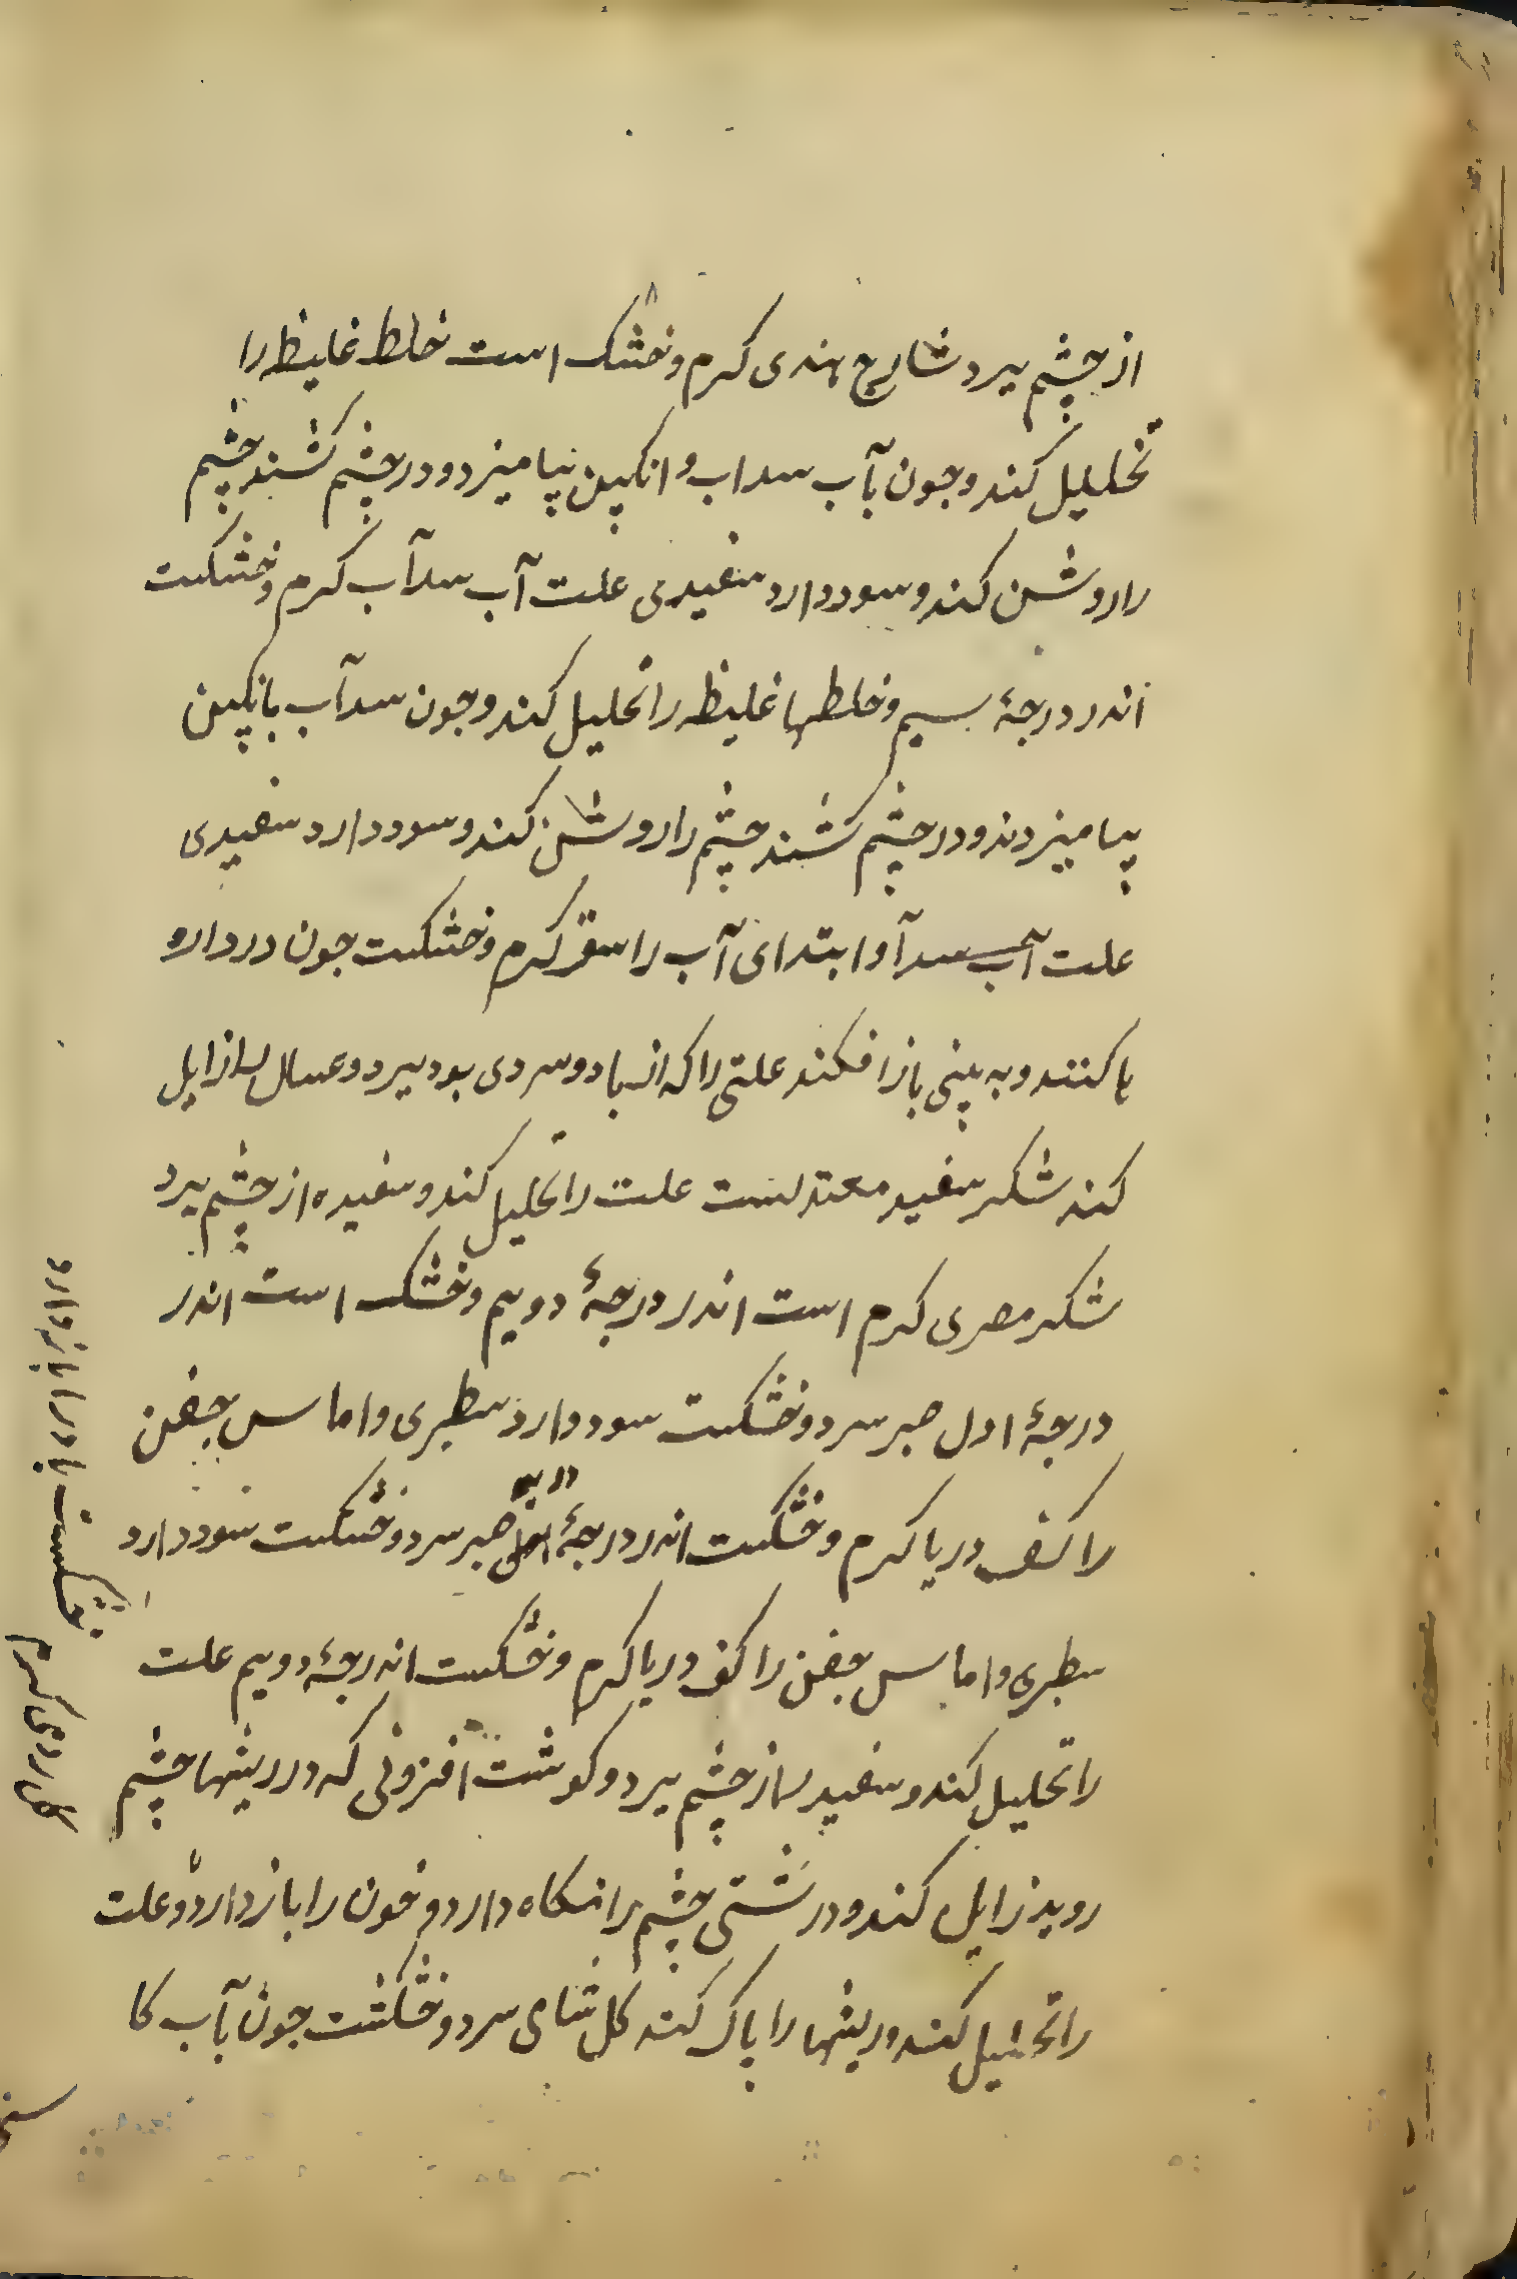 از چشم ببرد شارح هندی کرم و خشک است خلط غلیظ را
تحلیل کند و چون بآب سداب و انکپین بیامیزد و در چشم کشند چشم
را روشن کند و سود دارد سفیدی علت آب سدآب کرم و خشکست
اندر درجهٔ سیم و خلطها غلیظ را تحلیل کند و جون سدآب بانکپین
بیامیزدند و در چشم کشند چشم را روشن کند و سود دارد سفیدی
علت آب سدآ و ابتدای آب را سقر کرم و خشکست جون در دارو
با کنند و به بینی باز افکند علتی را که از باد و سردی بود ببرد و زایل
کند شکر سفید معتدلست علت را تحلیل کند و سفیده از چشم ببرد
شکر مصری کرم است اندر درجهٔ دویم و خشک است اندر
درجهٔ اول صبر سرد و خشکست سود دارد سطبری و اماس جفن
را کف دریا کرم و خشکست اندر درجهٔ صبر سرد و خشکست سود دارد
سطبری و اماس جفن را کف دریا کرم و خشکست اندرجهٔ دویم علت
را تحلیل کند و سفید از چشم ببرد و کوشت افزونی که در ریشها چشم
روید زایل کند و درشتی چشم را نکاه دارد و خون را باز دارد و علت
را تحلیل کند و ریشها را پاک کند کل شای سرد و خشکست جون بآب کا